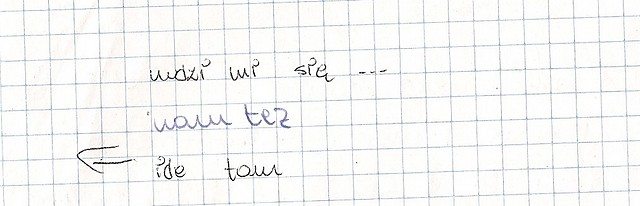 nudzi mi się ---
nam też
idę tam